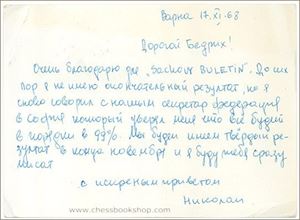 Варна 17.XI.68
Дорогой Бедрих!
Очень благодарю для „SACHOVY BULETIN". До их
пор я не имею окончательный резултат, но я
снова говорил с нашим секретар федерация
в София который уверял меня что все будий
в порядки в 99%. Мы будем имем твёрдом ре-
зултат в конца новембру и я буду тебя сразу
писат
с искреным приветом
Николай
www.chessbookshop.com